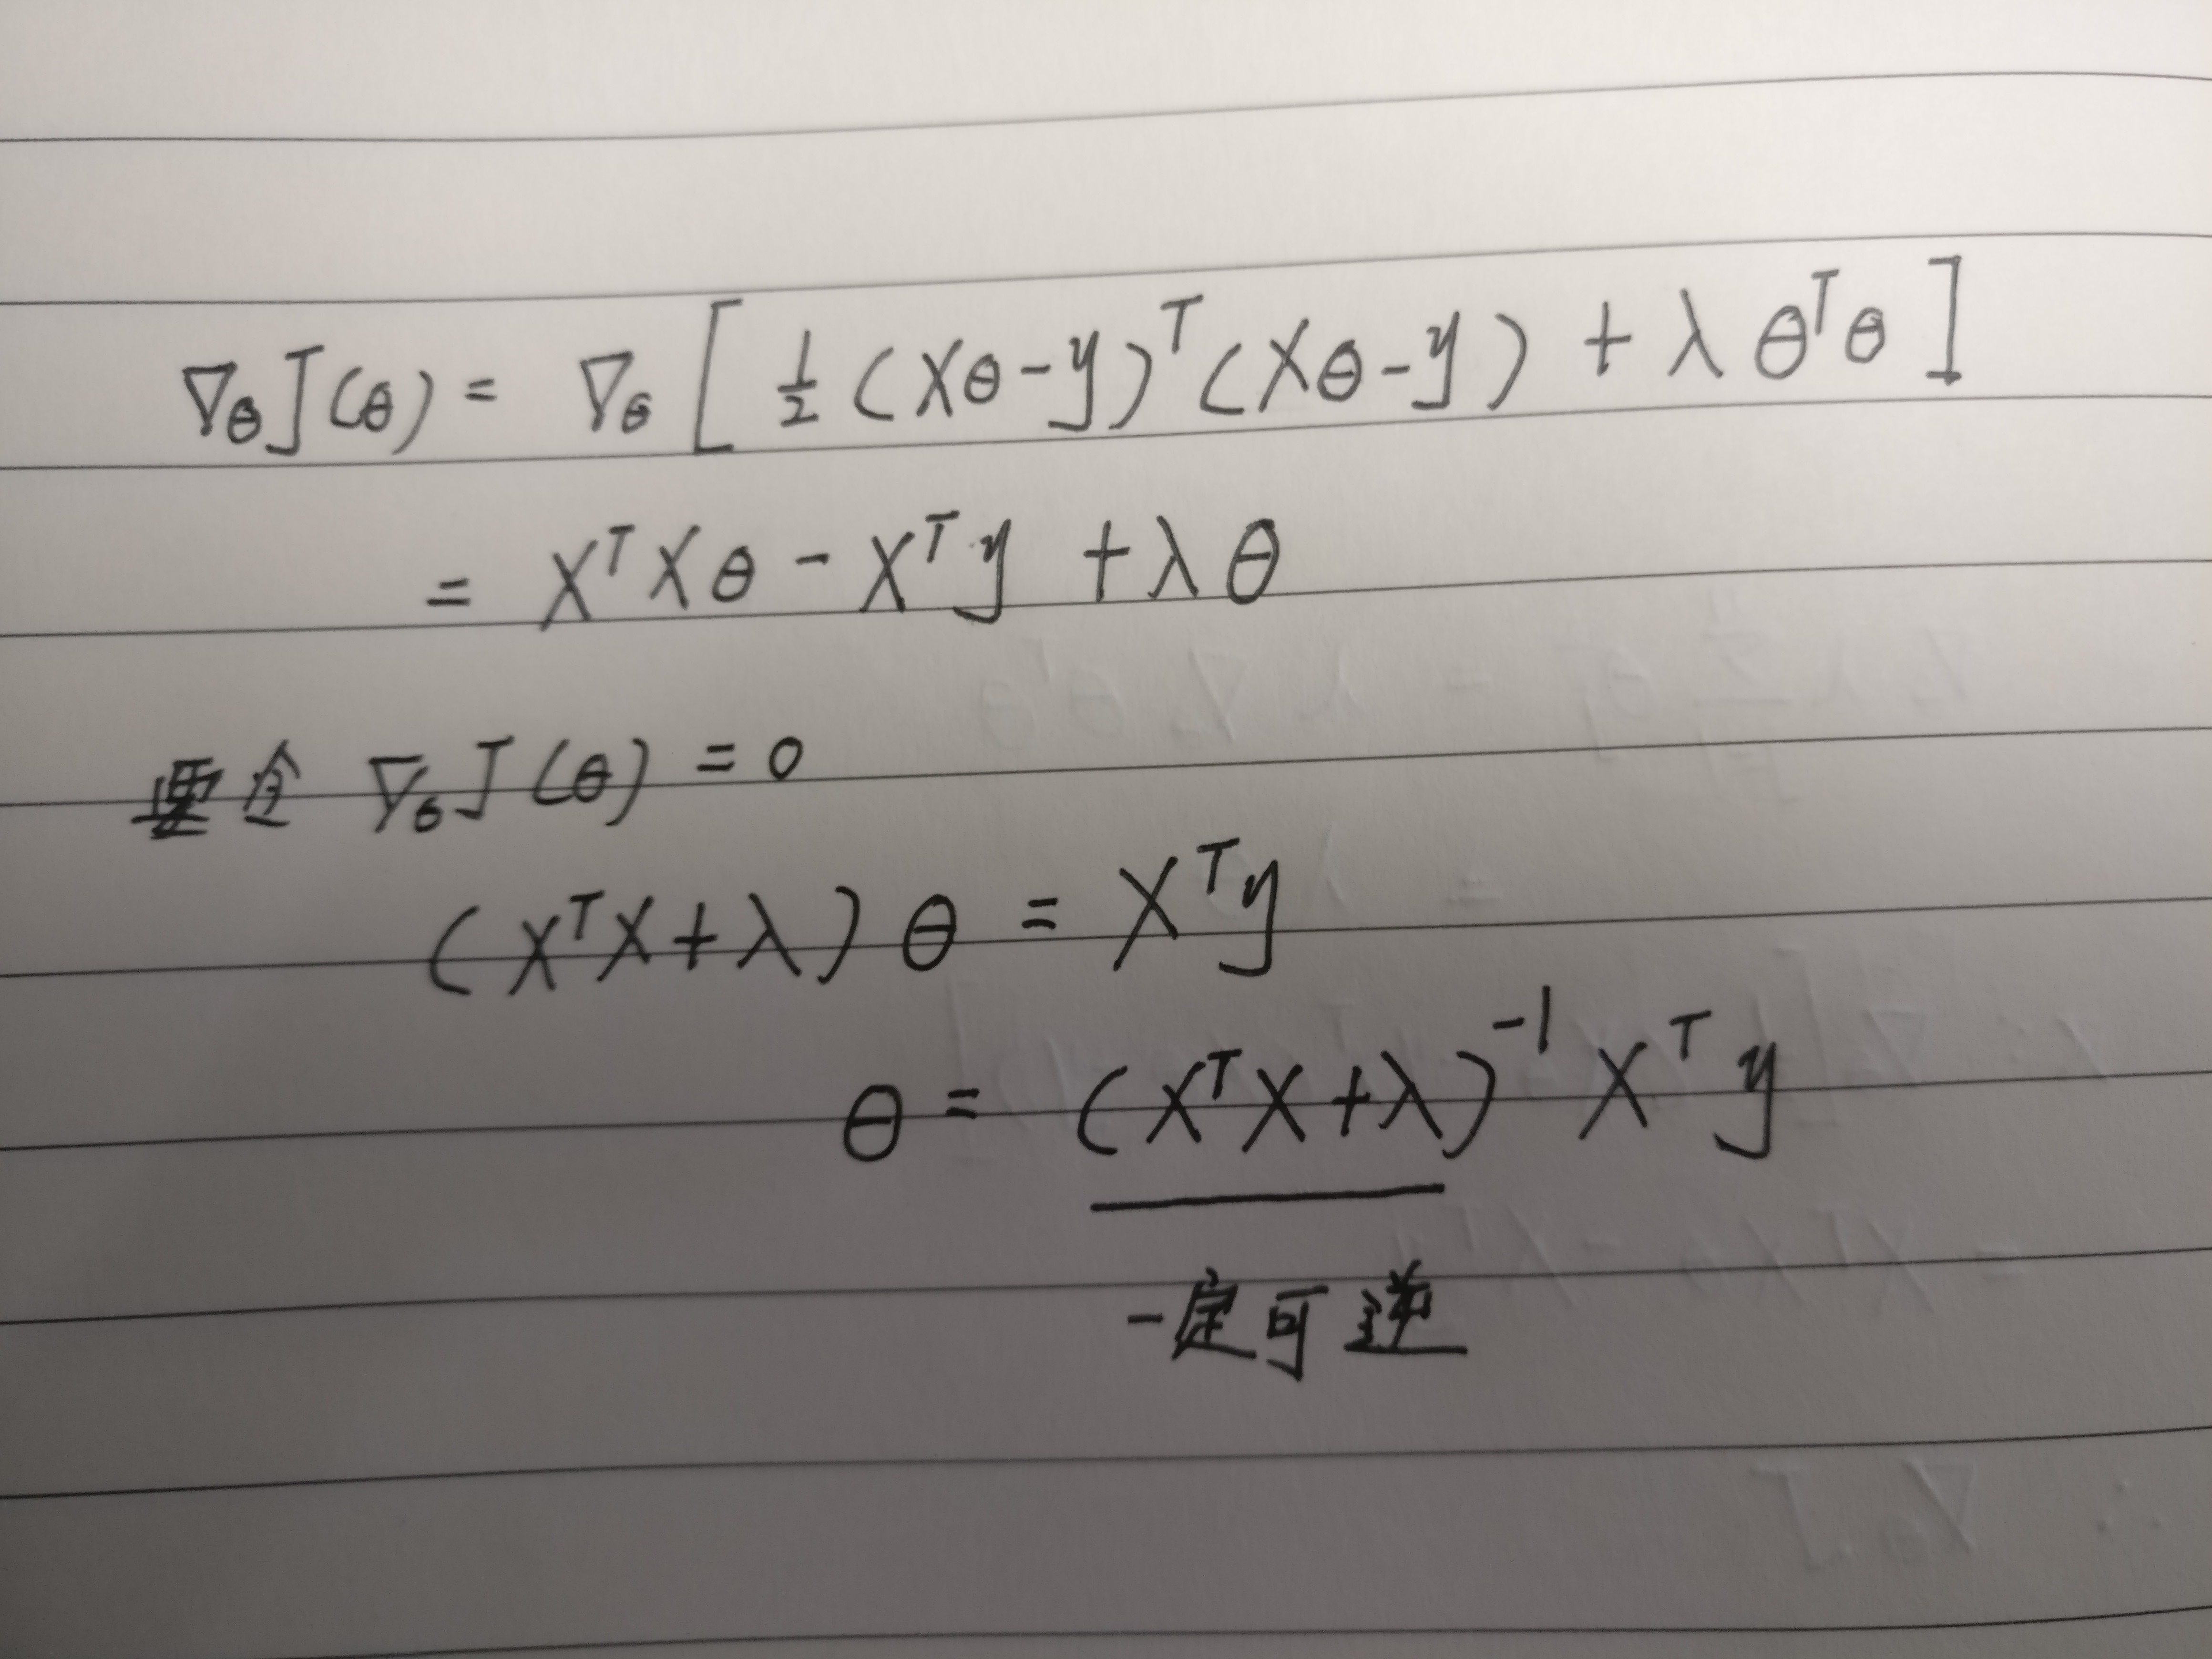 ∇θJ(θ) = ∇θ[½(Xθ-y)ᵀ(Xθ-y) + λθᵀθ]
= XᵀXθ - Xᵀy + λθ
要令 ∇θJ(θ) = 0
(XᵀX+λ)θ = Xᵀy
θ = (XᵀX+λ)⁻¹Xᵀy
一定可逆